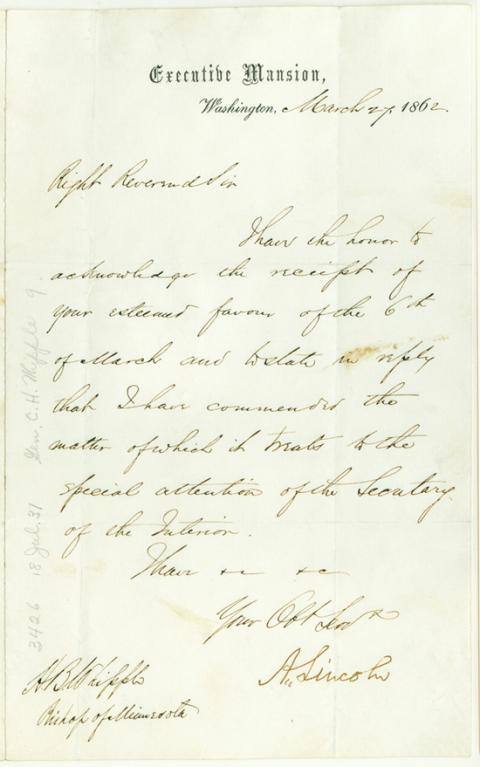 Executive Mansion,
Washington, March 27, 1862
Right Reverend Sir
I have the honor to
acknowledge the receipt of
your esteemed favour of the 6th
of March and to state in reply
that I have commended the
matter of which it treats to the
special attention of the Secretary
of the Interior.
I have &c &c
Your Obt Servt
A. Lincoln
H B Whipple
Bishop of Minnesota
3426 18 Jul. 31 Gen. C. H. Whipple 9.